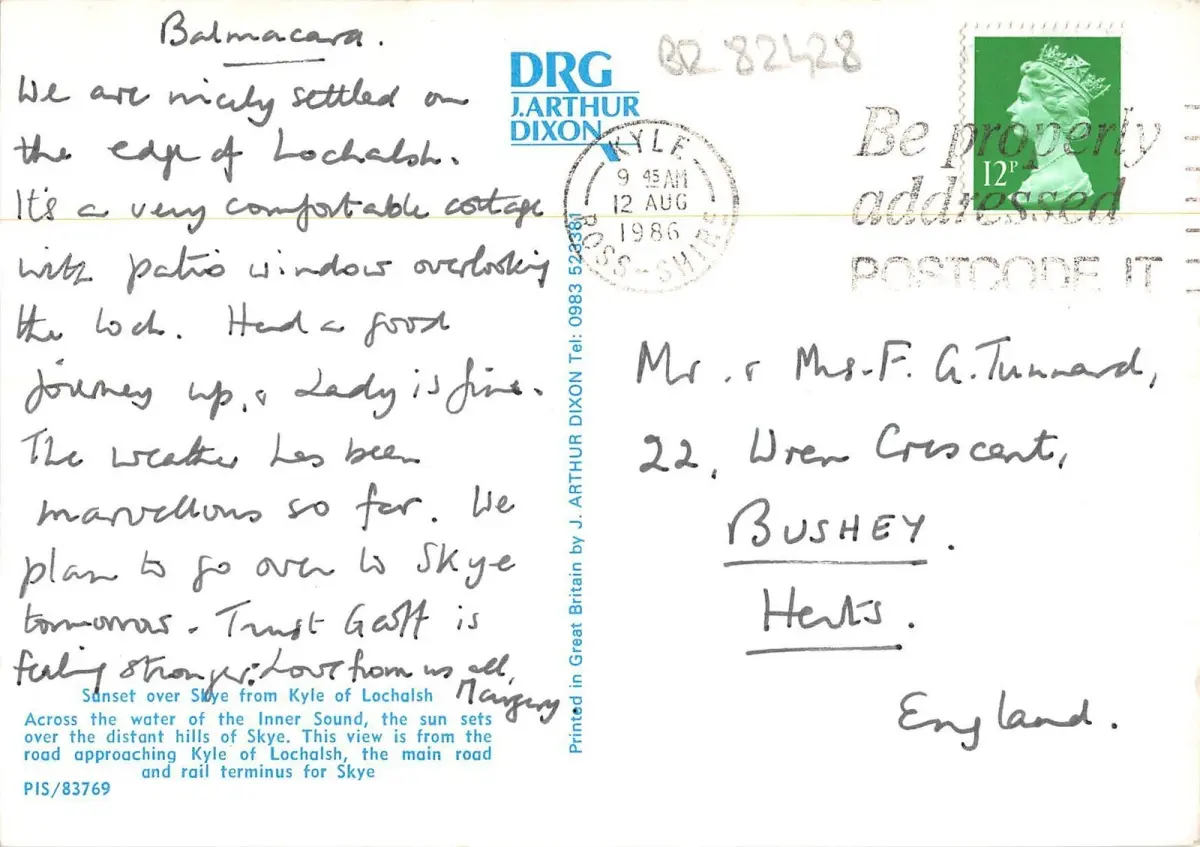 Balmacara.
We are nicely settled on
the edge of Lochalsh.
It's a very comfortable cottage
with patio window overlooking
the loch. Had a good
journey up, & Lady is fine.
The weather has been
marvellous so far. We
plan to go over to Skye
tomorrow. Trust Geoff is
feeling stronger. Love from us all,
Margery.
Sunset over Skye from Kyle of Lochalsh
Across the water of the Inner Sound, the sun sets
over the distant hills of Skye. This view is from the
road approaching Kyle of Lochalsh, the main road
and rail terminus for Skye
PIS/83769
DRG
J.ARTHUR
DIXON
Printed in Great Britain by J. ARTHUR DIXON Tel: 0983 523381
BR 82428
KYLE
9 45 AM
12 AUG
1986
ROSS-SHIRE
Be properly
addressed
POSTCODE IT
12P
Mr. & Mrs. F. G. Tunnard,
22, Wren Crescent,
BUSHEY.
Herts.
England.